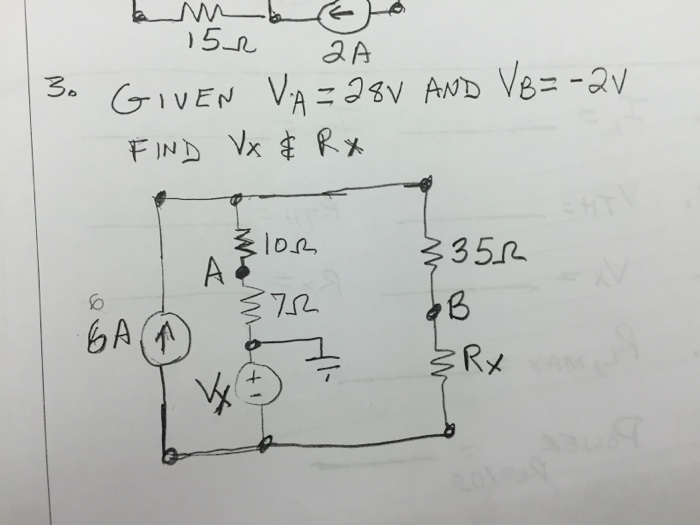 15Ω
2A
3. GIVEN VA = 28V AND VB = -2V
FIND Vx & Rx
10Ω
35Ω
A
7Ω
B
6
6A
Rx
Vx
+
-